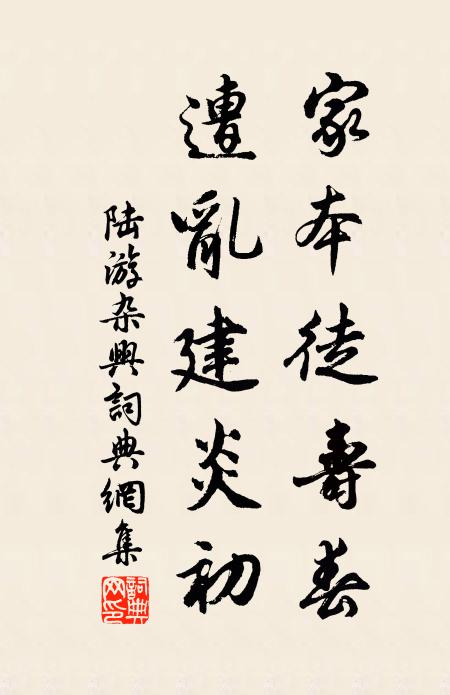 家本徒壽春
遭亂建炎初
陆游杂興詞典網集
詞典网印